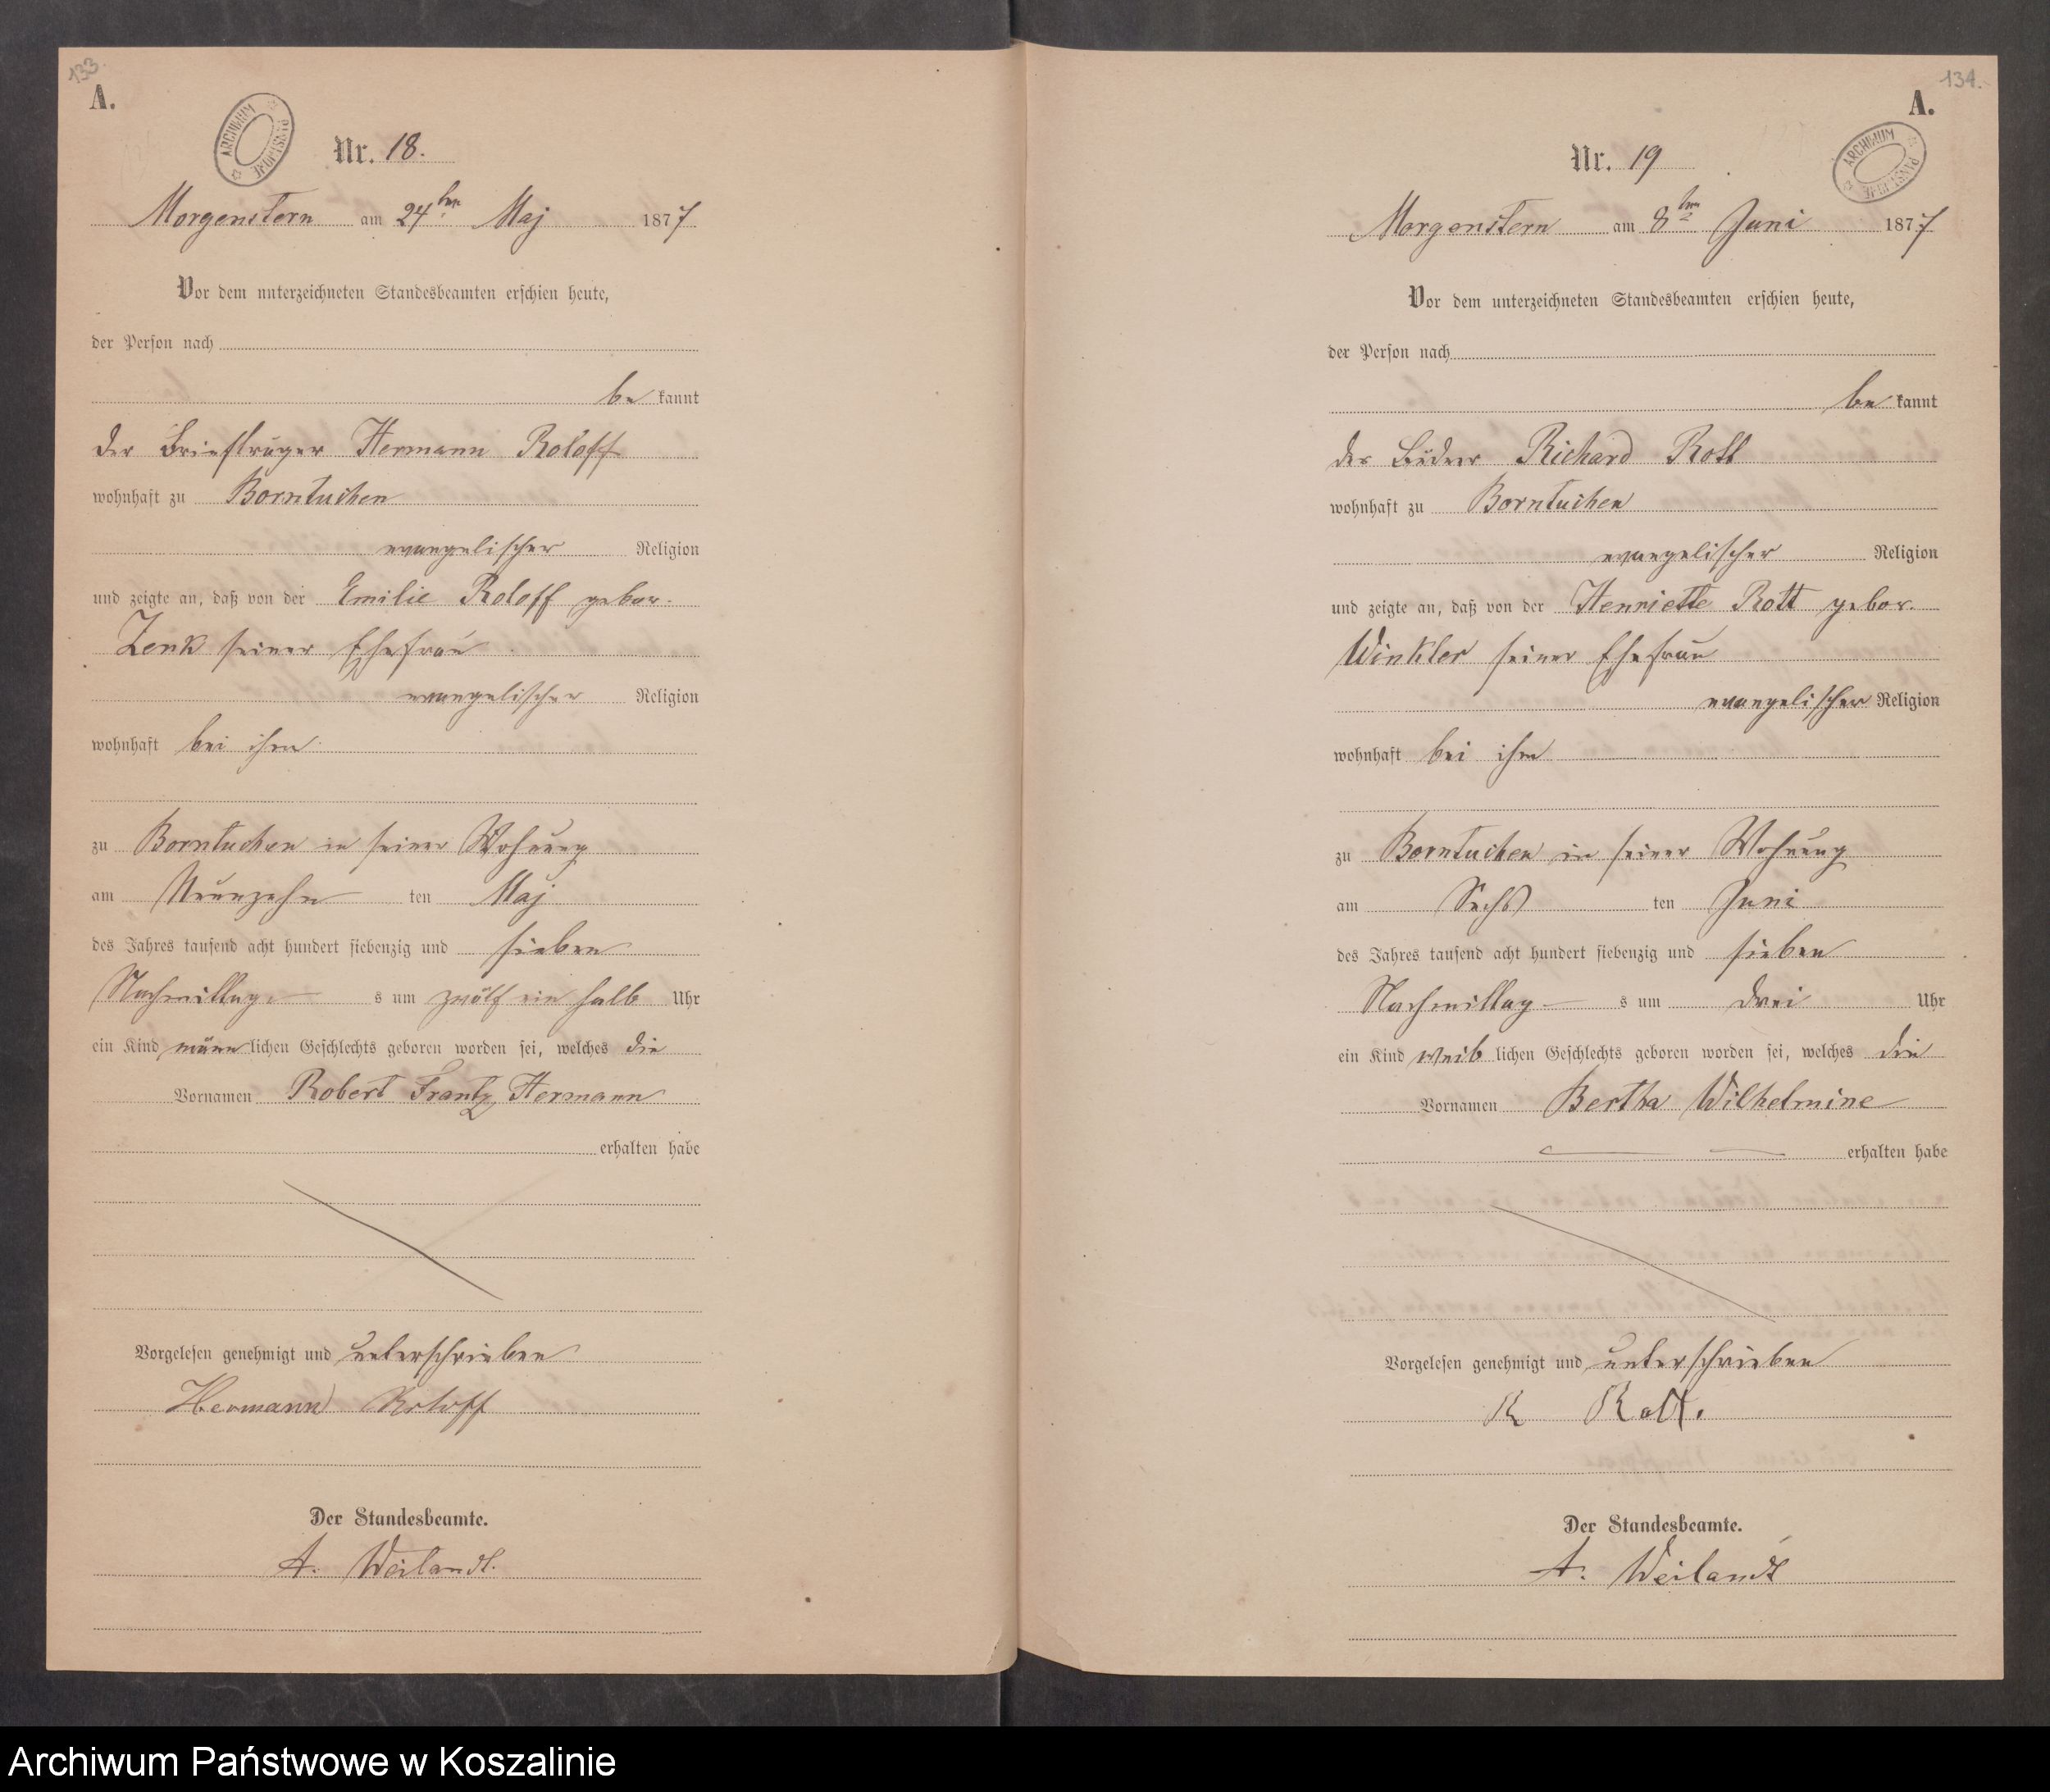 133.
A.
ARCHIWUM PAŃSTWOWE
Nr. 18.
Morgenstern am 24ten Maj 1877
Vor dem unterzeichneten Standesbeamten erschien heute,
der Person nach
be kannt
der Briefträger Hermann Roloff
wohnhaft zu Borntuchen
evangelischer Religion
und zeigte an, daß von der Emilie Roloff gebor.
Zenk seiner Ehefrau
evangelischer Religion
wohnhaft bei ihm
zu Borntuchen in seiner Wohnung
am Neunzehn ten Maj
des Jahres tausend acht hundert siebenzig und sieben
Nachmittag s um zwölf ein halb Uhr
ein Kind männ lichen Geschlechts geboren worden sei, welches die
Vornamen Robert Frantz Hermann
erhalten habe
Vorgelesen genehmigt und unterschrieben
Hermann Roloff
Der Standesbeamte.
A. Weilandt.
134.
A.
ARCHIWUM PAŃSTWOWE
Nr. 19
Morgenstern am 8ten Juni 1877
Vor dem unterzeichneten Standesbeamten erschien heute,
der Person nach
be kannt
der Büdner Richard Rott
wohnhaft zu Borntuchen
evangelischer Religion
und zeigte an, daß von der Henriette Rott gebor.
Winkler seiner Ehefrau
evangelischer Religion
wohnhaft bei ihm
zu Borntuchen in seiner Wohnung
am Sechs ten Juni
des Jahres tausend acht hundert siebenzig und sieben
Nachmittag s um drei Uhr
ein Kind weib lichen Geschlechts geboren worden sei, welches die
Vornamen Bertha Wilhelmine
erhalten habe
Vorgelesen genehmigt und unterschrieben
R Rott.
Der Standesbeamte.
A. Weilandt
Archiwum Państwowe w Koszalinie